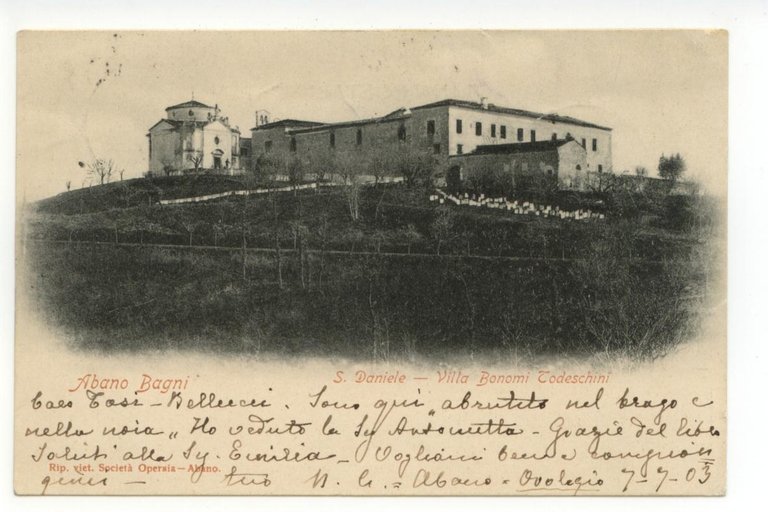 Abano Bagni
S. Daniele — Villa Bonomi Todeschini
Caro Tosi - Bellucci. Sono qui „abrutito nel brago e
nella noia„ Ho veduto la Sig Antonietta - Grazie del libro
Saluti alla Sig. Emilia - Vogliami bene e
Rip. viet. Società Operaia — Abano.
tuo Abano - 7-7-03